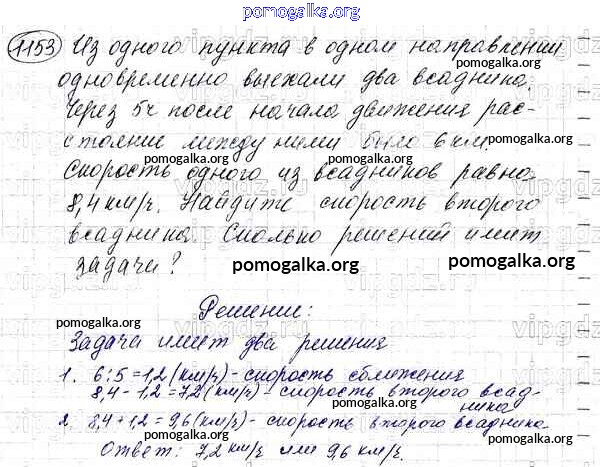 pomogalka.org
1153 Из одного пункта в одном направлении
одновременно выехали два всадника.
Через 5ч после начала движения рас-
стояние между ними было 6 км.
pomogalka.org pomogalka.org
Скорость одного из всадников равна
pomogalka.org
8,4 км/ч. Найдите скорость второго
всадника. Сколько решений имеет
задача?
pomogalka.org pomogalka.org
Решение:
pomogalka.org pomogalka.org
Задача имеет два решения
pomogalka.org
1. 6:5=1,2(км/ч)-скорость сближения
8,4-1,2=7,2(км/ч)-скорость второго всад-
ника
pomogalka.org
2. 8,4+1,2=9,6(км/ч)-скорость второго всадника
pomogalka.org
Ответ: 7,2км/ч или 9,6 км/ч.
pomogalka.org